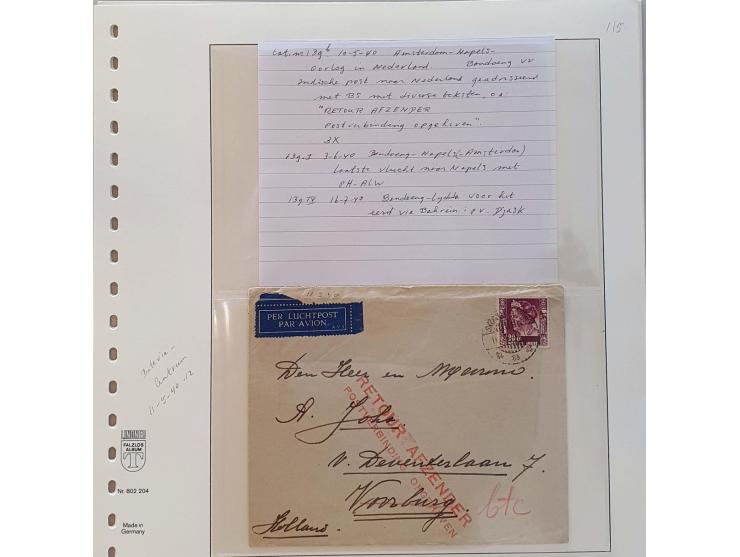 115
10-5-40 Amsterdam-Napels-
oorlog in Nederland. Bandoeng vv
Indische post naar Nederland geadresseerd
met BS met diverse teksten, oa:
"RETOUR AFZENDER
Postverbinding opgeheven".
3X
139.I 3-6-40 Bandoeng-Napels(-Amsterdam)
laatste vlucht naar Napels met
PH-ALW
139.IV 16-7-40 Bandoeng-Lydda voor het
eerst via Bahrein i.p.v. Djask
PER LUCHTPOST
PAR AVION
Den Heer en Mevrouw
A.
v. Deventerlaan 7.
Voorburg.
Holland.
RETOUR AFZENDER
POSTVERBINDING OPGEHEVEN
btc
Batavia-
Centrum
11-5-40 -12
FALZLOS
ALBUM
T
Nr. 802 204
Made in
Germany